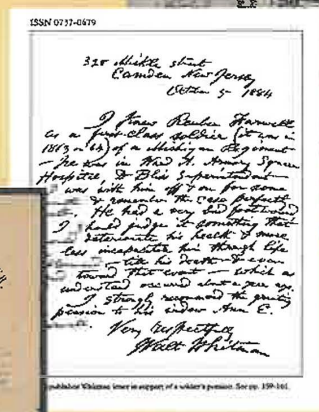 ISSN 0737-0679
328 Mickle street
Camden New Jersey
October 5 - 1884
I knew Reuben Farwell
as a first-class soldier (it was in
1863 &) of a Michigan Regiment
- he was in Ward Armory Square
Hospital, D Bliss Superintendent -
I was with him off & on for some
& remember the case perfectly
He had a very bad foot wound
I should judge it something that
deteriorate his health & more
less incapacitate him through life
till his death & even
toward that event - which as
understand occurred about a year ago.
I strongly recommend the granting
pension to his widow Ann E.
Very respectfully
Walt Whitman
published Whitman letter in support of a soldier's pension. See pp. 159-161.